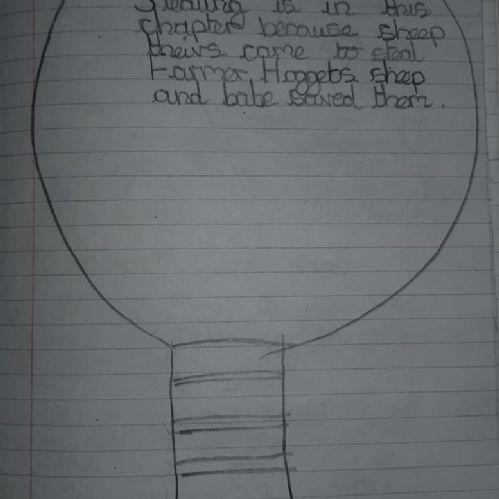 Stealing is in this
chapter because sheep
theivs came to steal
Farmer Hoggets sheep
and babe saved them.